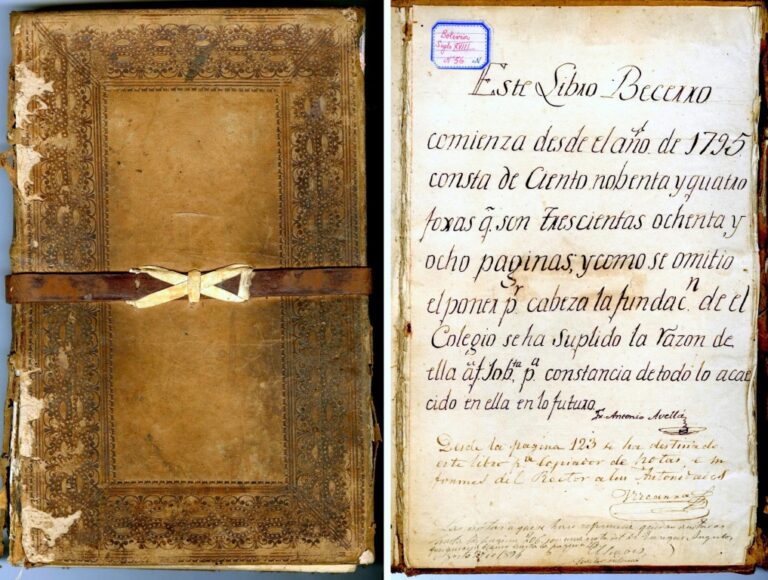 Bolivia
Siglo XVIII
Nº 56
Este Libro Becerro
comienza desde el añ̃o. de 1795
consta de Ciento nobenta y quatro
foxas q̃. son trescientas ochenta y
ocho paginas, y como se omitio
el poner pr. cabeza la fundacn. de el
Colegio se ha suplido la razon de
ella af. 10 bta. pa. constancia de todo lo acae
cido en ella en lo futuro
Fr. Antonio Avellá
Desde la pagina 123 se ha destinado
este libro pa. copiador de notas e in
formes del Rector a las Autoridades